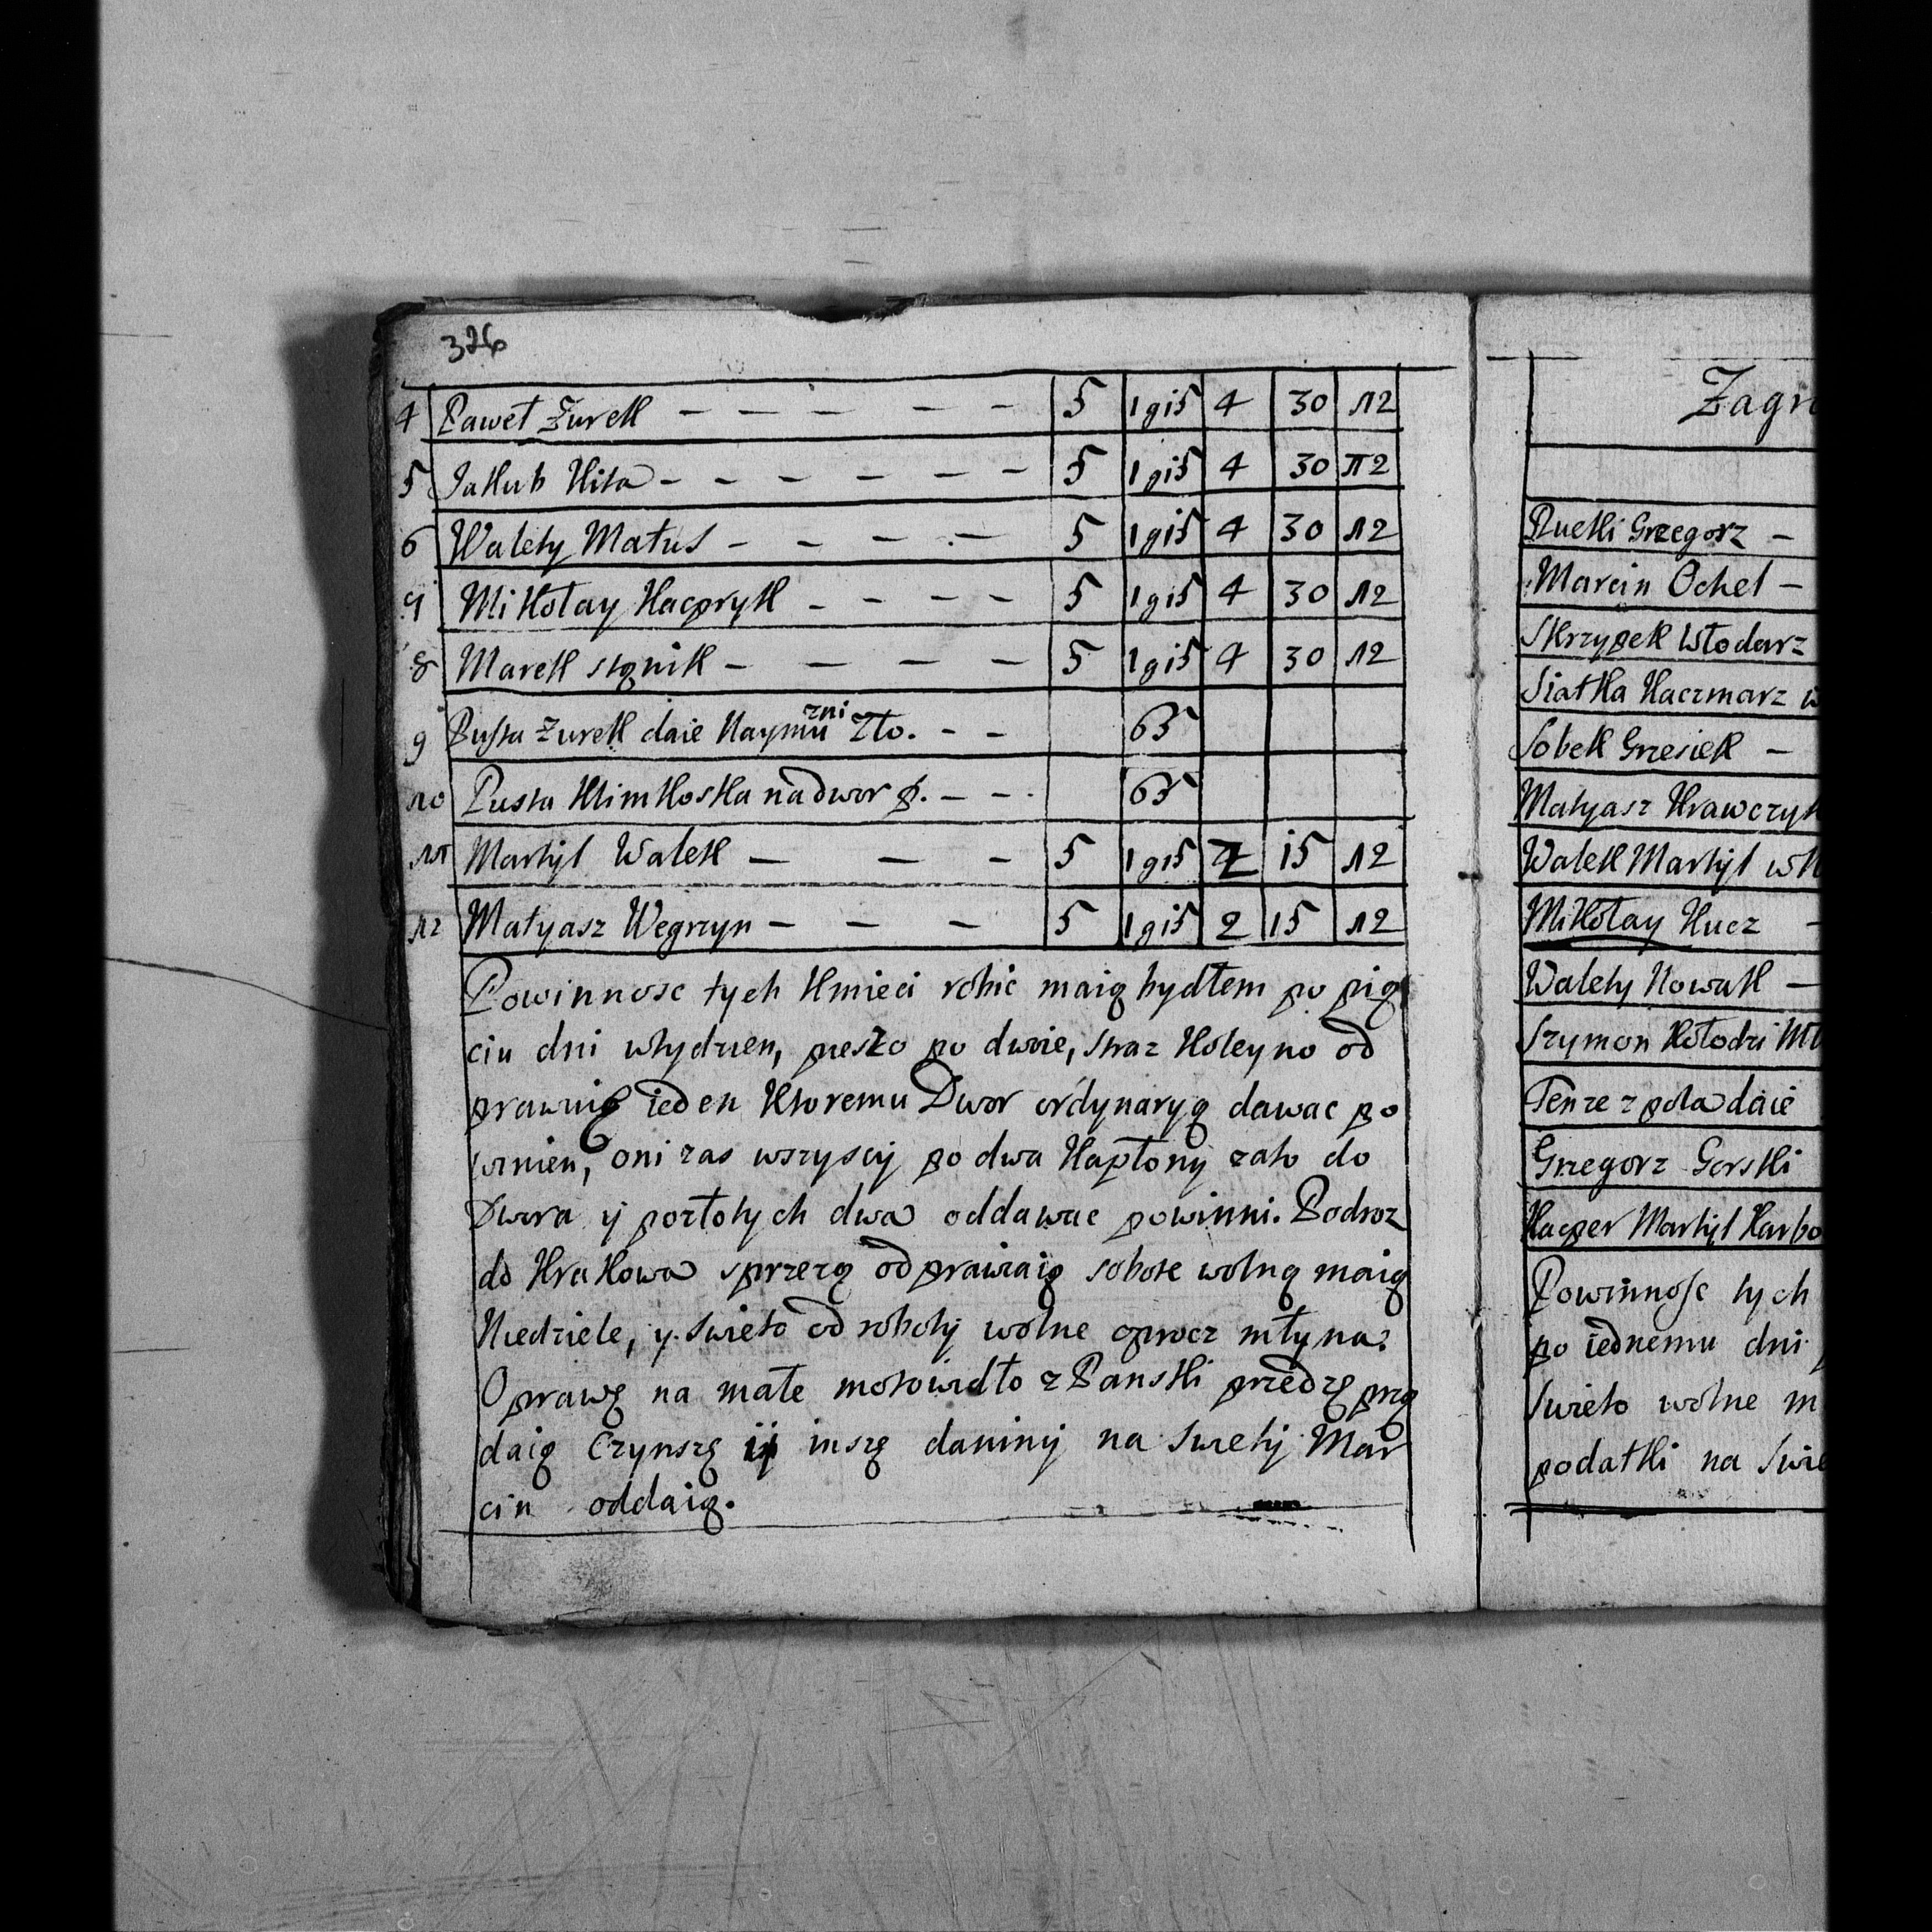 326
4 Paweł Zurek - - - - - 5 1 gi5 4 30 12
5 Jakub Kita - - - - - - 5 1 gi5 4 30 12
6 Walety Matus - - - - 5 1 gi5 4 30 12
7 Mikołay Kacpryk - - - - 5 1 gi5 4 30 12
8 Marek - - - - 5 1 gi5 4 30 12
9 Pusta Zurek daie Zło. - - 65
10 Pusta Klimkoska nadwor - - 65
11 Martyl Walek - - - 5 1 gi5 15 12
12 Matyasz Wegrzyn - - - 5 1 gi5 2 15 12
Powinnosc tych Kmieci robic maią bydłem po pię
ciu dni wtydzien, pieszo po dwoie, straz Koleyno od
prawuię ieden Ktoremu Dwor ordynaryą dawac po
winien, oni zas wszyscy po dwa Kapłony zato do
Dwora y pozłotych dwa oddawac powinni. Podroz
do Krakowa sprzezą odprawiaią sobote wolną maią
Niedziele, y swieto od roboty wolne oprocz młyna.
Oprawę na małe motowidło z Panski przedzę przę
daią Czynszę y inszę daniny na Swięty Mar
cin oddaią.
Zagro
Rucki Grzegorz -
Marcin Ochel -
Skrzypek Włodarz
Siatka Kaczmarz w
Sobek Grzesiek -
Matyasz Krawczyk
Walek Martyl wk
Mikołay Kucz -
Walety Nowak -
Szymon Kołodzi Mł
Tenze z pola daie
Grzegorz Gorski
Kacper Martyl Karbo
Powinnosc tych
po iednemu dni p
Swieto wolne m
podatki na Swie